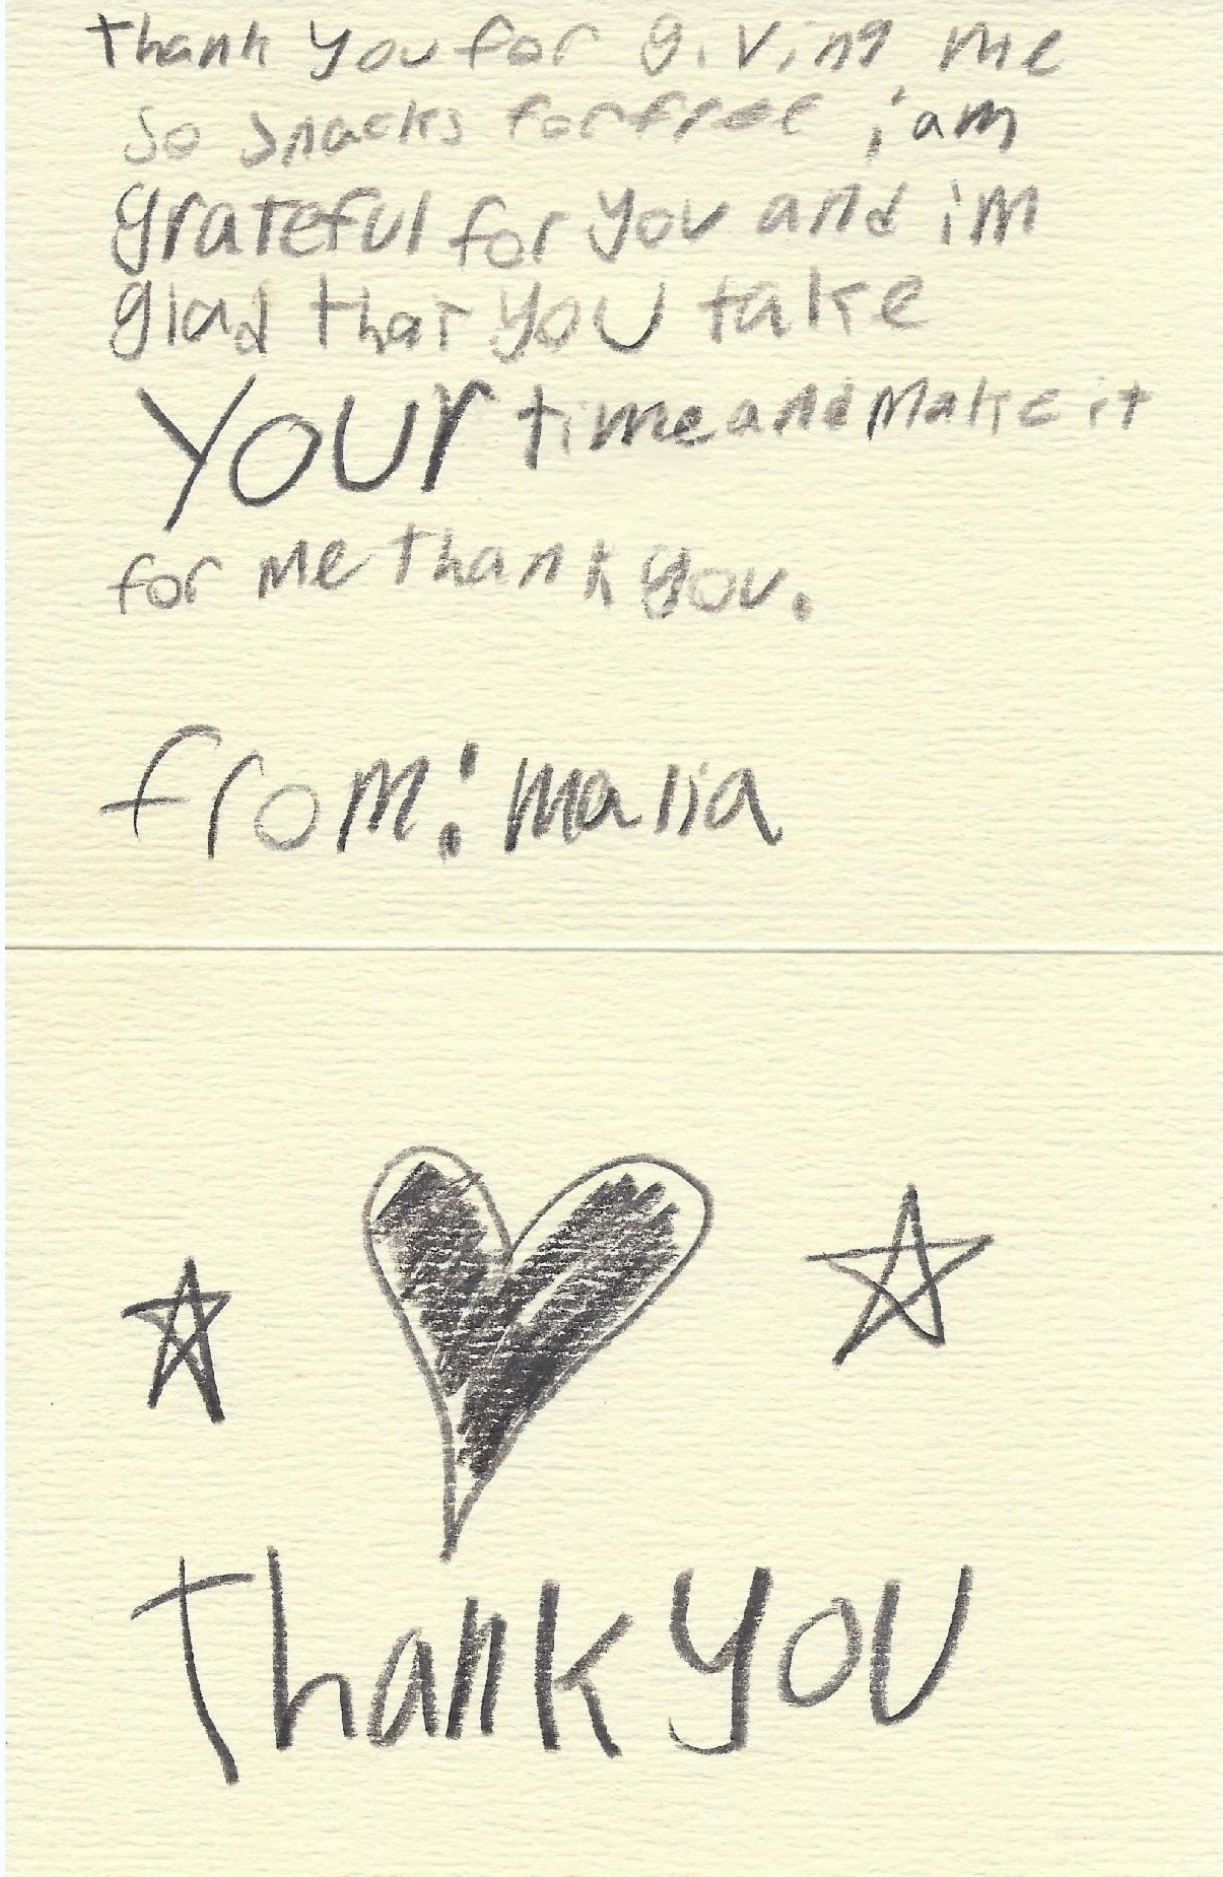 Thank you for giving me
so snacks for free i am
grateful for you and i'm
glad that you take
your time and make it
for me thank you.
from: malia
Thank you